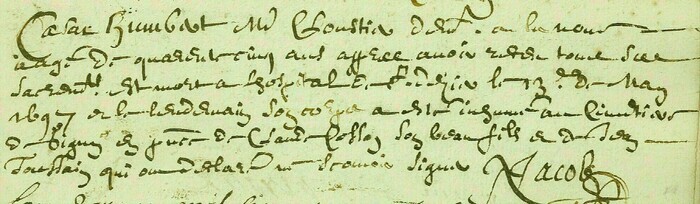 Cesar Humbert Mre Cloustier demt a la neuve
aagé de quarente cinq ans appres avoir receu tous ses
sacremts est mort a lhospital de St le 13e de May
1697 et le lendemain son corps a este inhumé au Cimetiere
de en pnce de Claude Cosson son beau fils et de Jean
Toussain qui ont declaré ne scavoir signer Jacob